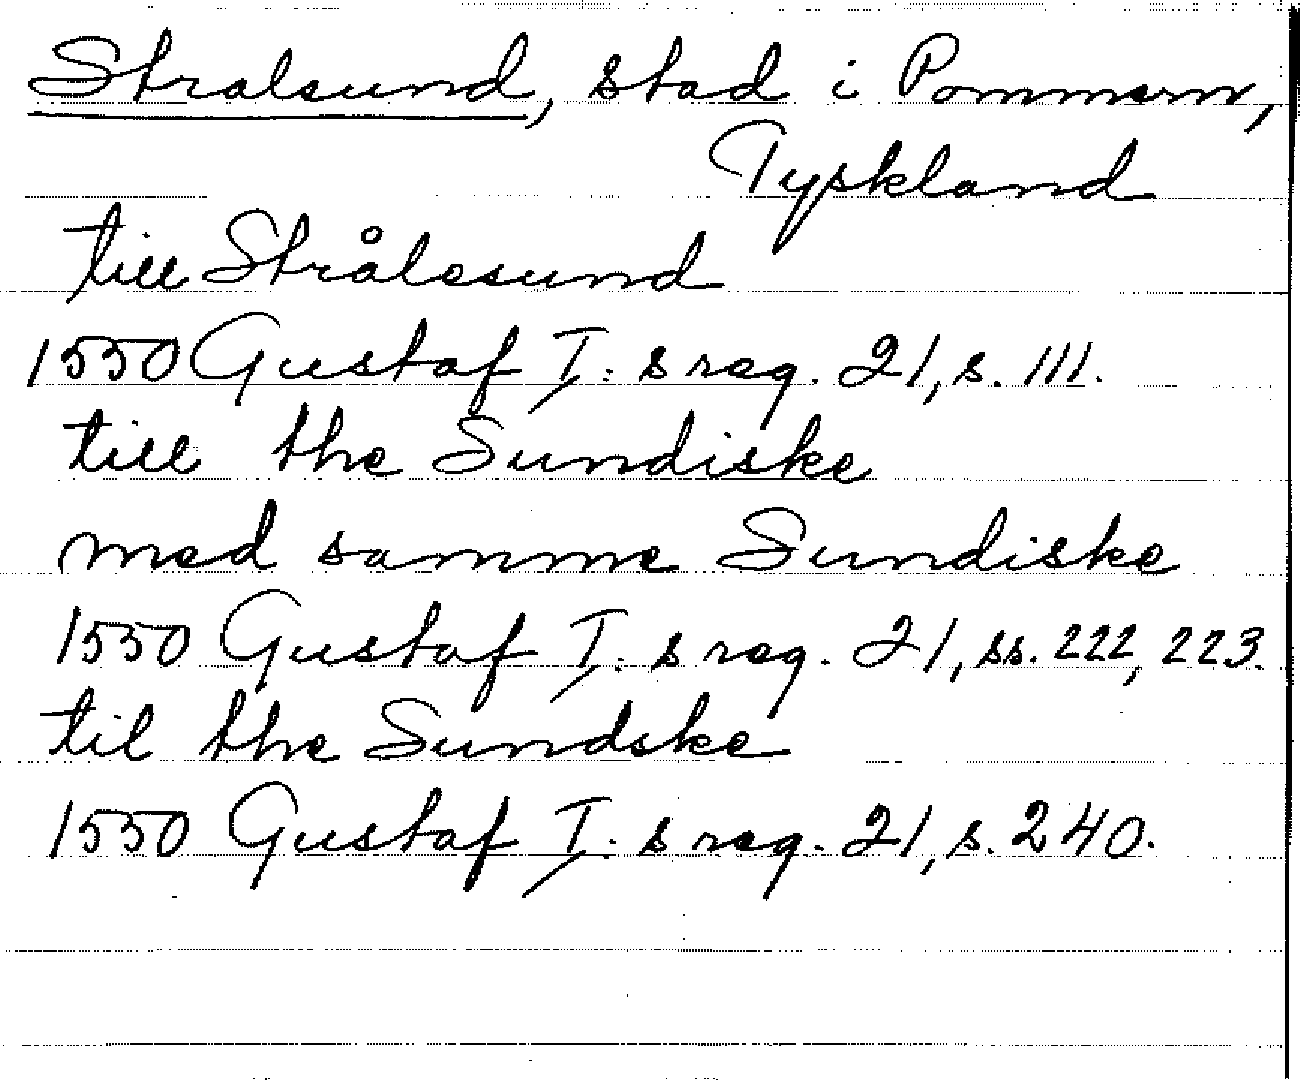 Stralsund, stad i Pommern,
Tyskland
till Strålesund
1550 Gustaf I:s reg. 21, s. 111.
till the Sundiske
med samme Sundiske
1550 Gustaf I:s reg. 21, ss. 222, 223.
til the Sundske
1550 Gustaf I:s reg. 21, s. 240.